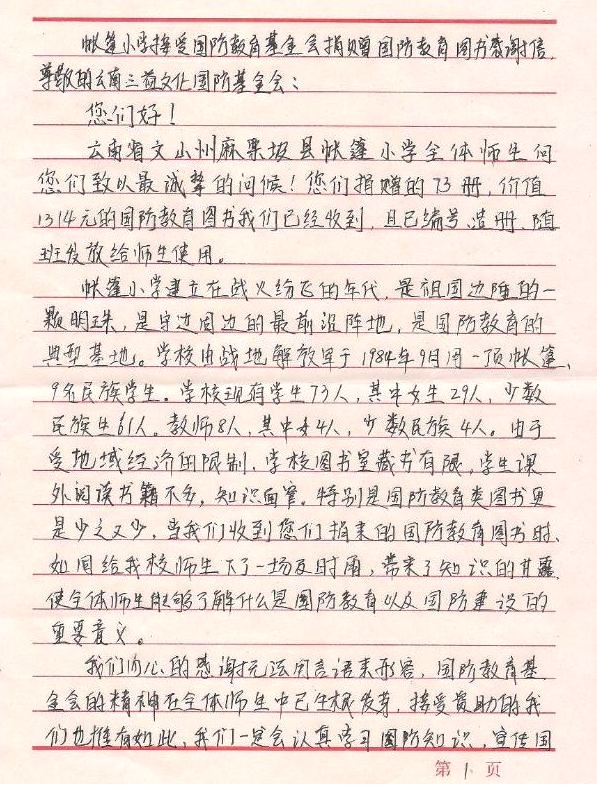 帐篷小学接受国防教育基金会捐赠国防教育图书感谢信
尊敬的云南三益文化国防基金会：
您们好！
云南省文山州麻栗坡县帐篷小学全体师生向
您们致以最诚挚的问候！您们捐赠的73册，价值
1314元的国防教育图书我们已经收到，且已编号、造册、随
班发放给师生使用。
帐篷小学建立在战火纷飞的年代，是祖国边陲的一
颗明珠，是守边固边的最前沿阵地，是国防教育的
典型基地。学校由战地解放军于1984年9月用一顶帐篷、
9名民族学生。学校现有学生73人，其中女生29人，少数
民族生61人。教师8人，其中女4人，少数民族4人。由于
受地域经济的限制，学校图书室藏书有限，学生课
外阅读书籍不多，知识面窄。特别是国防教育类图书更
是少之又少，当我们收到您们捐来的国防教育图书时、
如同给我校师生下了一场及时雨，带来了知识的甘露，
使全体师生能够了解什么是国防教育以及国防建设的
重要意义。
我们内心的感谢无法用言语来形容，国防教育基
金会的精神在全体师生中已生根发芽，接受资助的我
们也惟有如此，我们一定会认真学习国防知识，宣传国
第 1 页